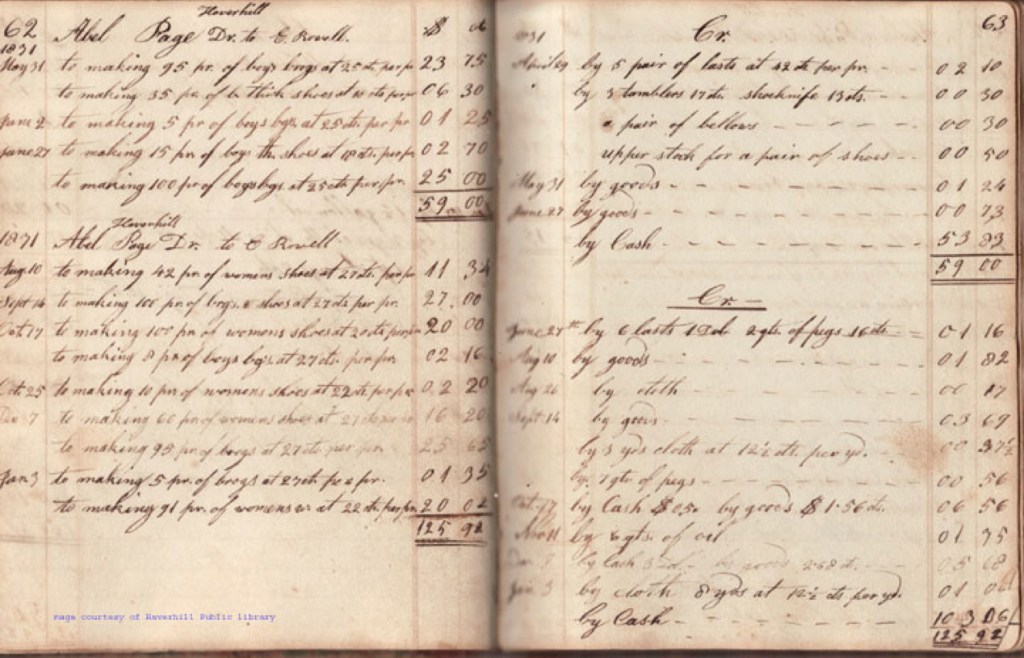 62 Haverhill
Abel Page Dr. to E. Rowell. $ cts
1831
May 31 to making 95 pr. of boys brogs at 25 cts per pr 23 75
to making 35 pr. of b. thick shoes at 18 cts per pr 06 30
June 2 to making 5 pr of boys bgs. at 25 cts per pr 01 25
June 27 to making 15 pr. of boys th. shoes at 18 cts. per pr 02 70
to making 100 pr. of boys bgs. at 25 cts per pr. 25 00
59 00
Haverhill
1831 Abel Page Dr. to E Rowell
Aug. 10 to making 42 pr. of womens shoes at 27 cts. per pr 11 34
Sept 14 to making 100 pr. of brgs. & shoes at 27 cts per pr. 27. 00
Oct. 17 to making 100 pr. of womens shoes at 20 cts per pr 20 00
to making 8 pr. of boys bgs. at 27 cts. per pr. 02 16
Oct. 25 to making 10 pr. of womens shoes at 22 cts. per pr 02 20
Dec 7 to making 60 pr. of womens shoes at 27 cts per pr 16 20
to making 95 pr. of brogs at 27 cts per pr. 25 65
Jan. 3 to making 5 pr. of brogs at 27 cts per pr. 01 35
to making 91 pr. of womens at 22 cts. per pr. 20 02
125 92
page courtesy of Haverhill Public library
1831 Cr. 63
April 29 by 5 pair of lasts at 42 cts per pr. 02 10
by 3 tamblers 17 cts. shoeknife 13 cts. 00 30
a pair of bellows 00 30
upper stock for a pair of shoes 00 50
May 31 by goods 01 24
June 27 by goods 00 73
by Cash 53 83
59 00
Cr.
June 27th by 6 lasts 1 Dol 2 qts. of pegs 16 cts. 01 16
Aug 10 by goods 01 82
Aug 26 by cloth 00 87
Sept. 14 by goods 03 69
by 3 yds cloth at 12½ cts. per yd. 00 37½
by 7 qts of pegs 00 56
Oct. 17 by Cash $ 05. by goods $ 1.56 cts. 06 56
Nov 11 by 6 qts. of oil 01 75
Dec. 7 by Cash 3 Dol. by goods 2.68 ct. 05 68
Jan. 3 by cloth 8 yds at 12½ cts per yd.
by Cash 103 06
125 92